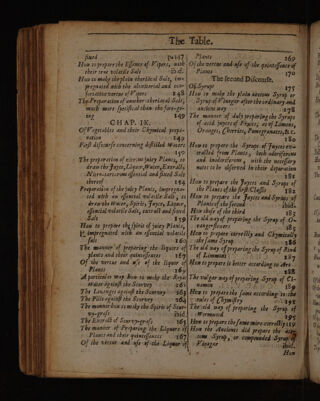 The Table.
stard pa 147
How to prepare the Essence of Vipers, with
their true volatile Salt ibid.
How to make the plain theriacal Salt, im-
pregnated with the alexiterial and com-
fortative vertue of Vipers 148
The Preparation of another theriacal Salt,
much more specifical than the fore-go-
ing 149
CHAP. IX.
Of Vegetables and their Chymical prepa-
ration 149
First discourse concerning distilled Waters
150
The preparation of nitrous juicy Plants, to
draw the Juyce, Liquor, Water, Extract,
Nitro-tartareous essential and fixed Salts
thereof 154
Preparation of the juicy Plants, impregna-
ted with an essential volatile Salt, to
draw the Waters, Spirits, Juyces, Liquor,
essential volatile Salt, extract and fixed
Salt 159
How to prepare the spirit of juicy Plants,
impregnated with an essential volatile
salt 162
The manner of preparing the liquors of
plants and their quintessences 163
Of the vertue and use of the liquor of
Plants 164
A particular way how to make the Scurvy
Water against the Scurvy 162
The Lozenges against the Scurvy 164
The Pills against the Scurvy ibid.
The manner how to make the Spirit of Scur-
vy-grass ibid.
The Extract of Scurvy-grass 165
The manner of Preparing the Liquors of
Plants and their quintessences 167
Of the vertue and use of the Liquor of
Plants 169
Of the vertue and use of the quintessence of
Plants 170
The second Discourse.
Of Syrups 175
How to make the plain acetous Syrup or
Syrup of Vinegar after the ordinary and
ancient way 178
The manner of duly preparing the Syrups
of acid juyces of Plants, as of Limons,
Oranges, Cherries, Pomegranates, &c.
180
How to prepare the Syrups of Juyces ex-
tracted from Plants, both odoriferous
and inodoriferous, with the necessary
notes to be observed in their depuration
181
How to prepare the Juyces and Syrups of
the Plants of the first Classis 182
How to prepare the Juyces and Syrups of
Plants of the second ibid.
How those of the third 183
The old way of preparing the Syrup of O-
ranges 185
How to prepare verteously and Chymically
the same Syrup 186
The old way of preparing the Syrup of Rind
of Limmons 187
How to prepare it better according to Art
188
The vulgar way of preparing Syrup of Ci-
namon 189
How to prepare the same according to the
rules of Chymistry 192
The old way of preparing the Syrup of
Wormwood 195
How to prepare the same more excellently
How the Ancients did prepare the
Syrup, or compounded Syrup of
Vinegar ibid.
How